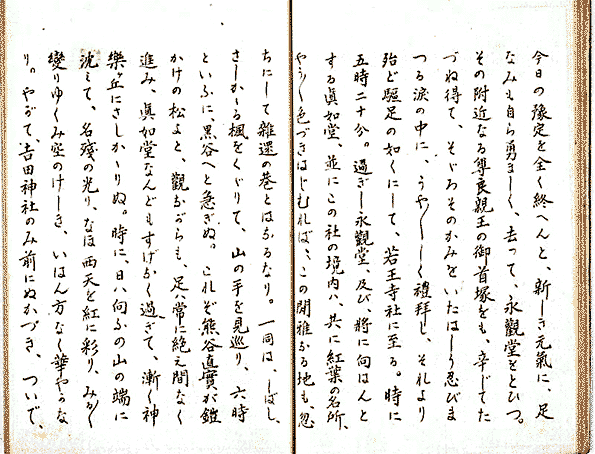 今日の豫定を全く終へんと、新しき元氣に、足
なみも自ら勇ましく、去って、永觀堂をとひつ。
その附近なる尊良親王の御首塚をも、辛じてた
づね得て、そゞろそのかみをいたはしう忍びま
つる涙の中に、うや／＼しく禮拜し、それより
殆ど驅足の如くにして、若王寺社に至る。時に
五時二十分。過ぎし永觀堂、及び、將に向はんと
する眞如堂、並にこの社の境内ハ、共に紅葉の名所、
やう／＼色づきはじむれば、この閑雅なる地も、忽
ちにして雜還の巷とはなるなり。一同は、しばし、
さしかゝる楓をくゞりて、山の手を見巡り、六時
といふに、黒谷へと急ぎぬ。これぞ熊谷直實が鎧
かけの松よと、觀ながらも、足ハ常に絶え間なく
進み、眞如堂なんどもすげなく過ぎて、漸く神
樂ヶ丘にさしかゝりぬ。時に、日ハ向ふの山の端に
沈みて、名殘の光り、なほ西天を紅に彩り、みるく
變りゆくみ空のけしき、いはん方なく華やかな
り。やがて、吉田神社のみ前にぬかづき、ついで、